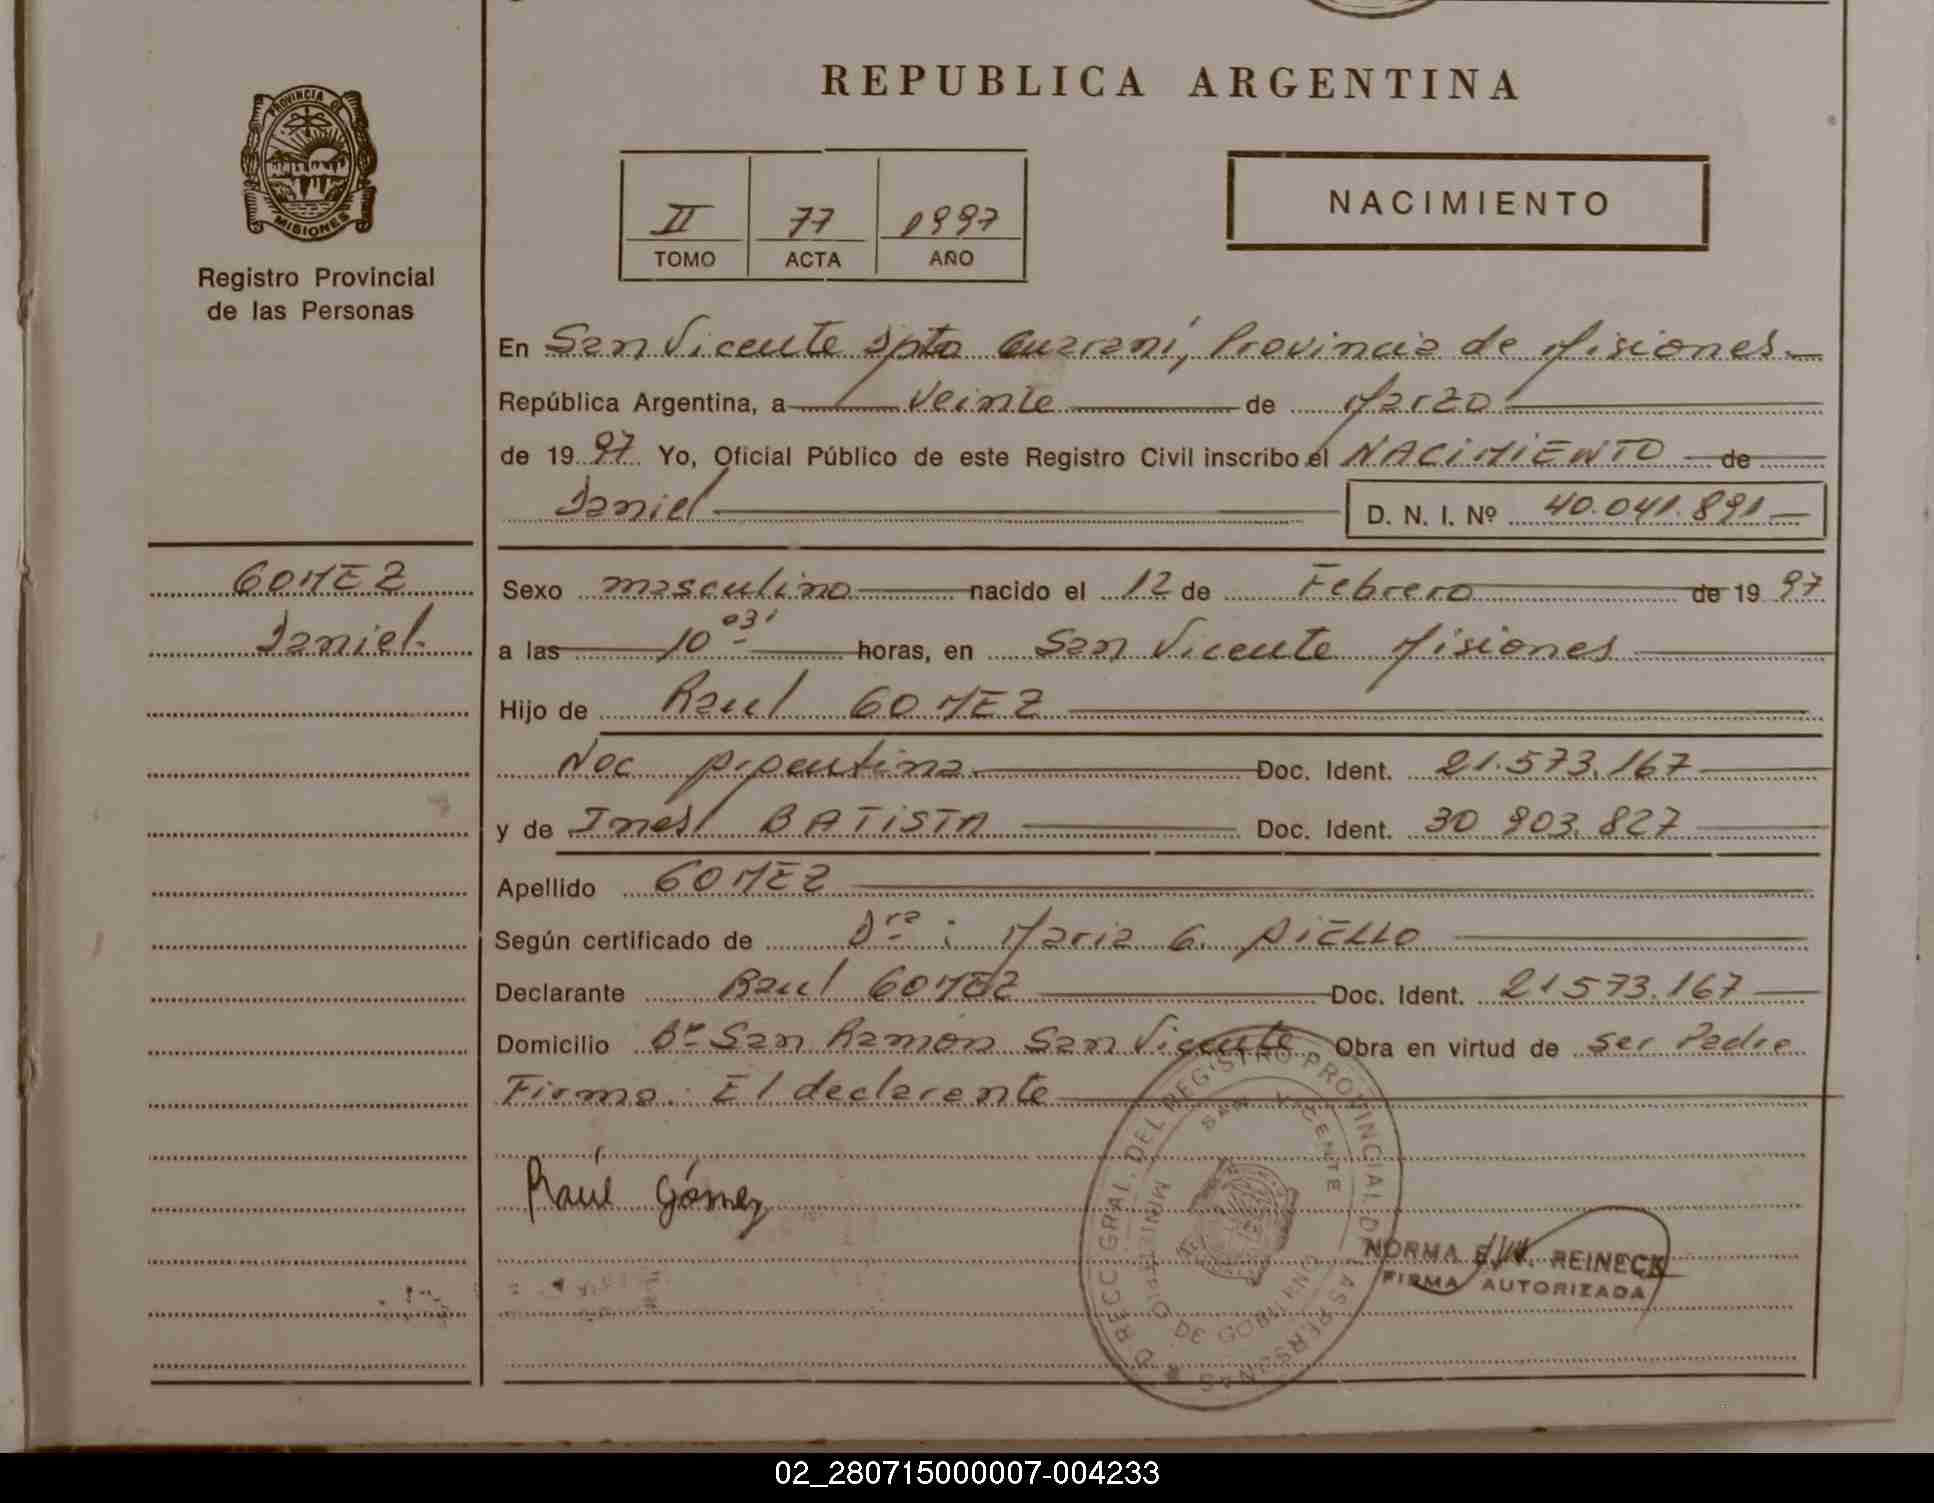 REPUBLICA ARGENTINA
PROVINCIA DE
MISIONES
Registro Provincial
de las Personas
II 77 1997
TOMO ACTA AÑO
NACIMIENTO
En San Vicente Dpto Guaraní, Provincia de Misiones.
República Argentina, a Veinte de Marzo
de 1997 Yo, Oficial Público de este Registro Civil inscribo el NACIMIENTO de
Daniel D. N. I. Nº 40.041.891
GOMEZ
Daniel.
Sexo masculino nacido el 12 de Febrero de 1997
a las 10 03' horas, en San Vicente Misiones
Hijo de Raul GOMEZ
Nac Argentina. Doc. Ident. 21.573.167
y de Ines BATISTA Doc. Ident. 30 903.827
Apellido GOMEZ
Según certificado de Dra: Maria G. AIELLO
Declarante Raul GOMEZ Doc. Ident. 21573.167
Domicilio Bº San Ramon San Vicente Obra en virtud de ser Padre
Firma: El declarante
Raúl Gómez
DIRECC. GRAL. DEL REGISTRO PROVINCIAL DE LAS PERSONAS
SAN VICENTE
MINISTERIO DE GOBIERNO
NORMA REINECK
FIRMA AUTORIZADA
02_280715000007-004233